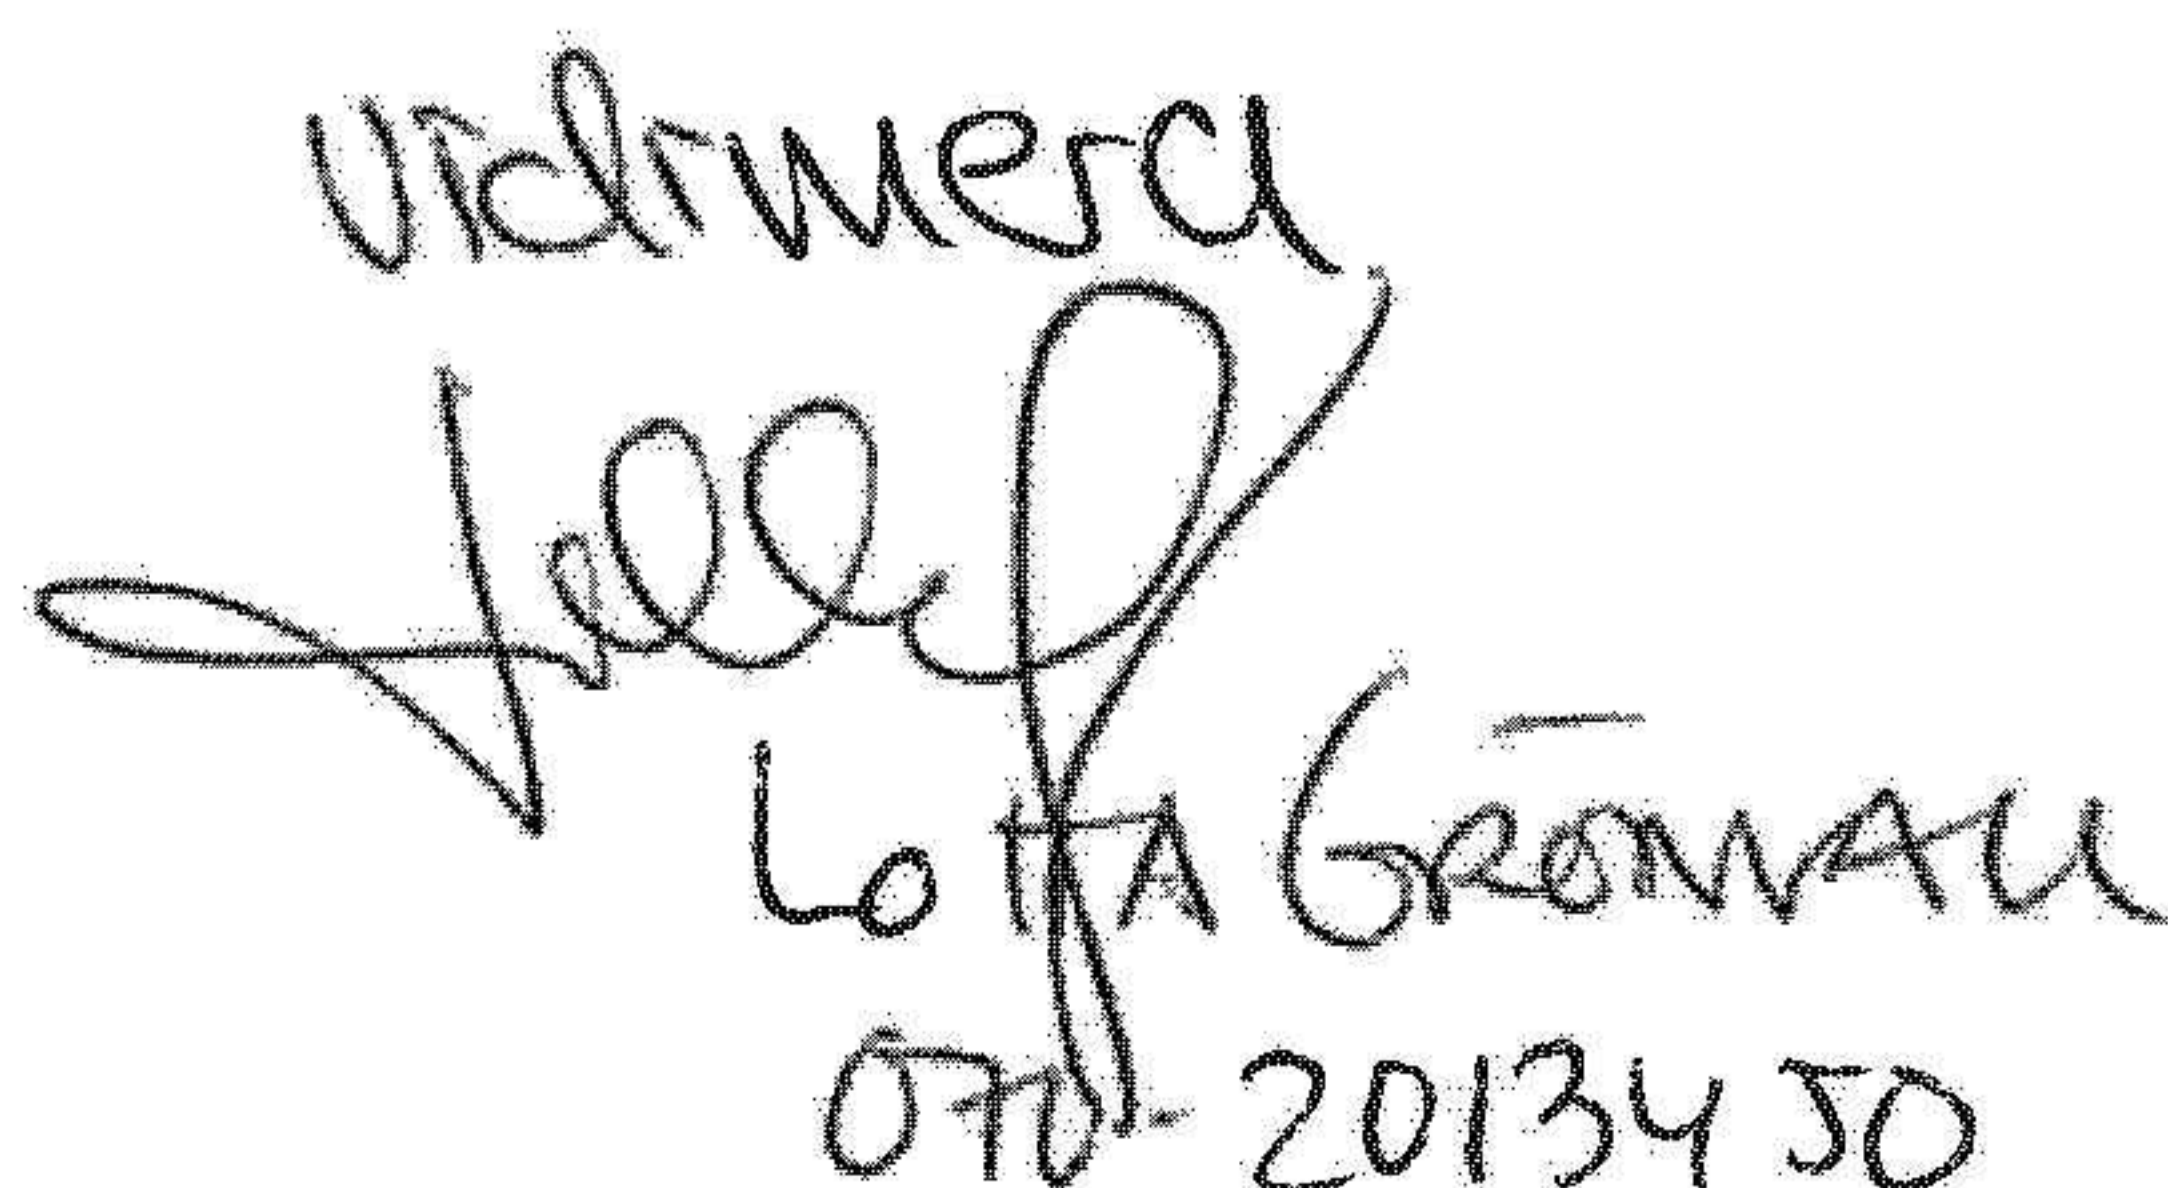 Vidimera
LOTTA GRÖNWALL
070-20134 50